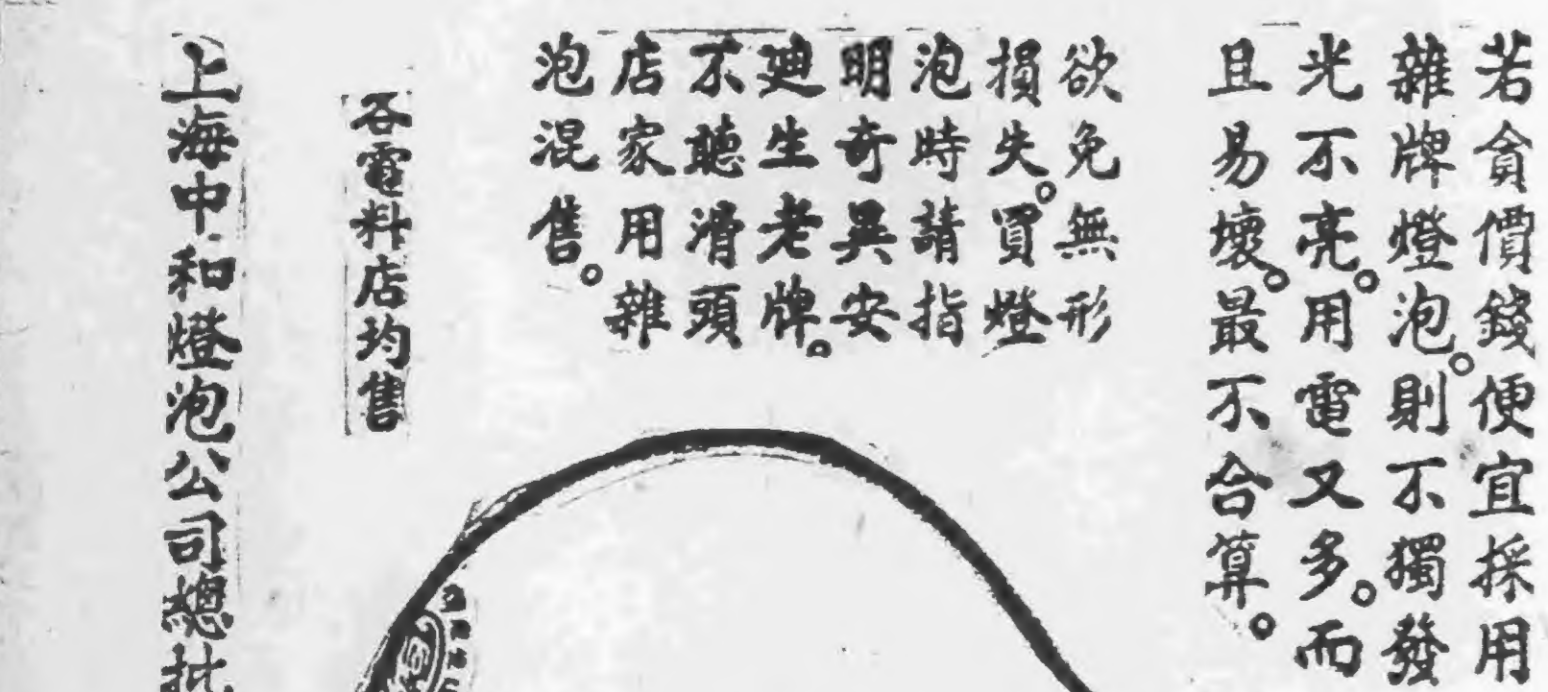 若貪價錢便宜採用
雜牌燈泡。則不獨發
光不亮。用電又多。而
且易壞。最不合算。
欲免無形
損失。買燈
泡時請指
明奇異安
廸生老牌。
不聽滑頭
店家用雜
泡混售。
各電料店均售
上海中和燈泡公司總批